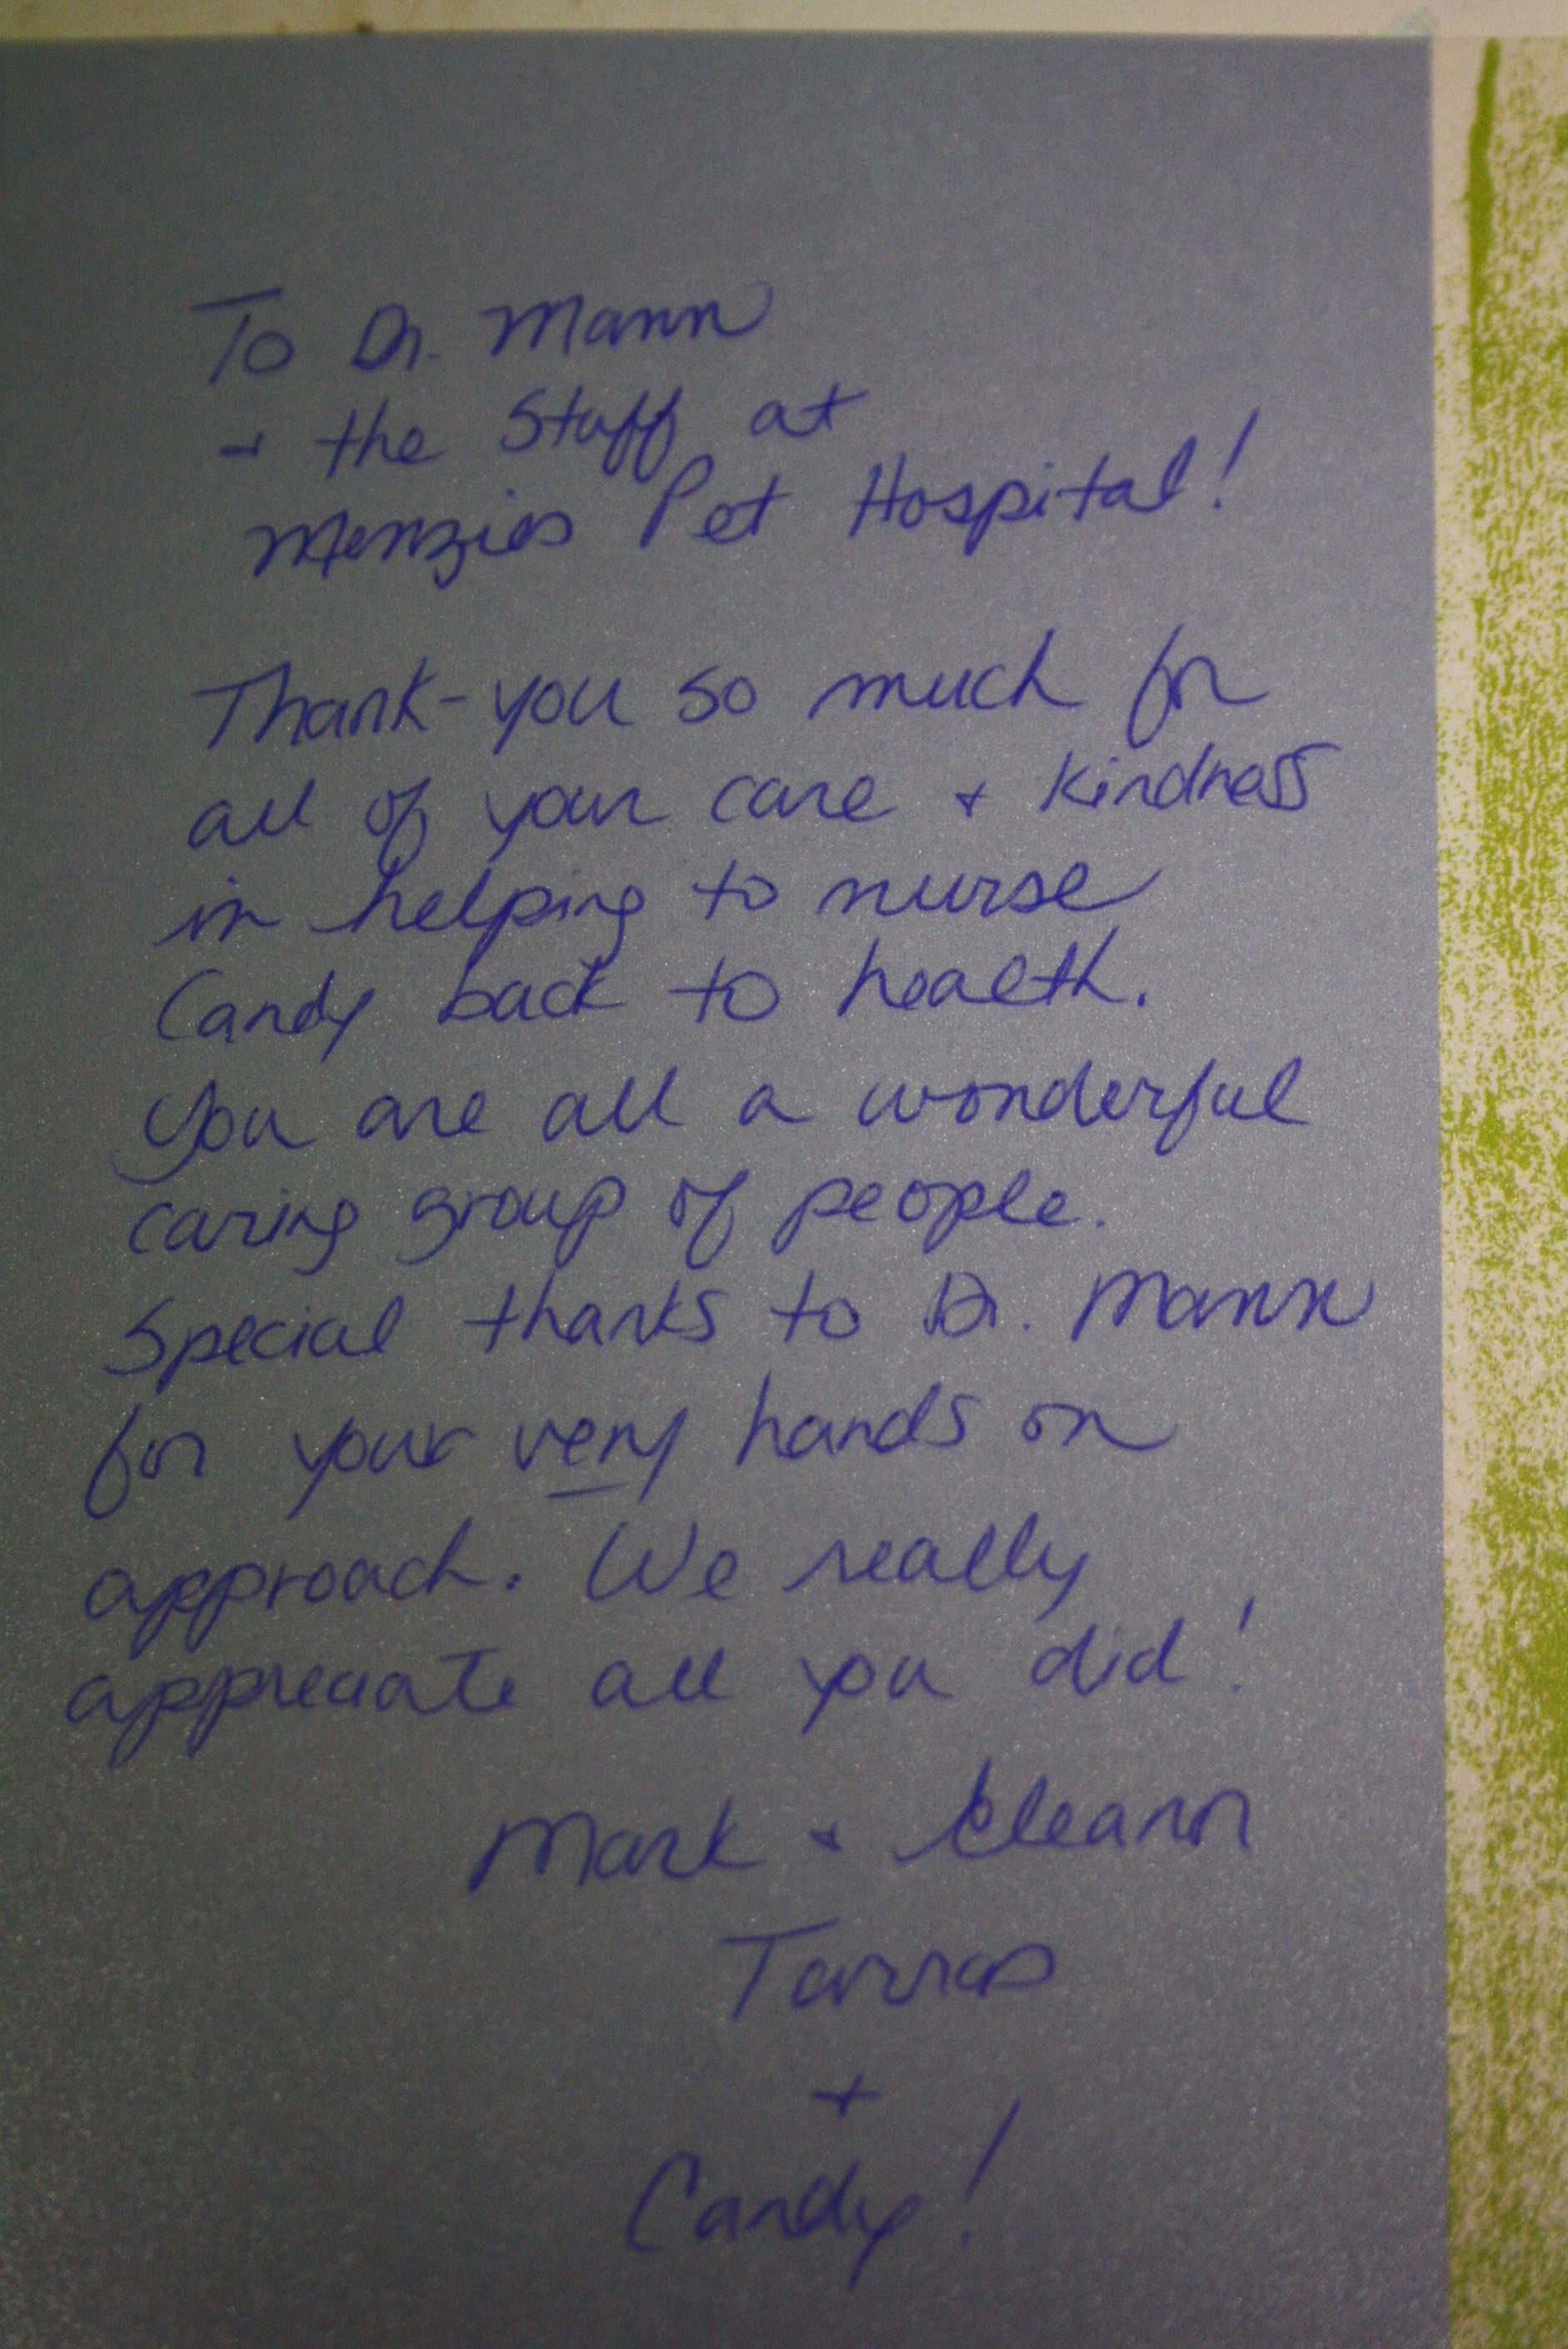 To Dr. Mann
+ the Staff at
Menzies Pet Hospital!
Thank-you so much for
all of your care + kindness
in helping to nurse
Candy back to health.
You are all a wonderful
caring group of people.
Special thanks to Dr. Mann
for your very hands on
approach. We really
appreciate all you did!
Mark + Eleann
Tarras
+
Candy!